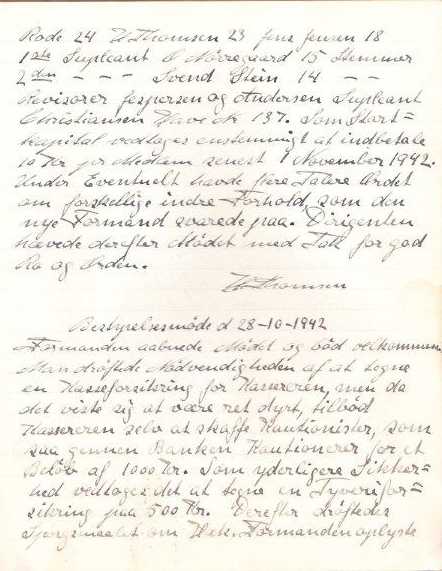 Rode 24 V Thomsen 23 Jens Jensen 18
1ste Supleant O Nörregaard 15 Stemmer
2den – – – Svend Stein 14 – –
Revisorer Jespersen og Andersen Supleant
Christiansen Have № 137. Som Start=
kapital vedtages enstemmigt at indbetale
10 Kr pr Medlem senest 1 November 1942.
Under Eventuelt havde flere Talere Ordet
om forskellige indre Forhold, som den
nye Formand svarede paa. Dirigenten
hævede derefter Mödet med Tak for god
Ro og Orden.
Thomsen
Bestyrelsesmöde d 28-10-1942
Formanden aabnede Mödet og böd velkommen
Man dröftede Nödvendigheden af at tegne
en Kasseforsikring for Kassereren, men da
det viste sig at være ret dyrt, tilböd
Kassereren selv at skaffe Kautionister, som
saa gennem Banken Kautionerer for et
Belöb af 1000 Kr. Som yderligere Sikker=
hed vedtages det at tegne en Tyverifor=
sikring paa 500 Kr. Derefter dröftedes
Spörgsmaalet om Hæk. Formanden oplyste